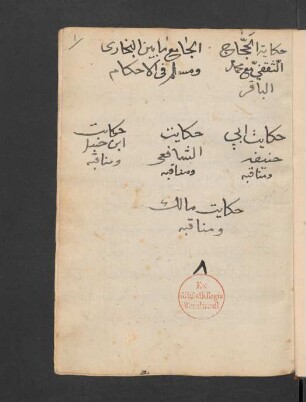 ١
حكاية الحجاج
الثقفي مع محمد
الباقر
الجامع ما بين البخارى
ومسلم فى الاحكام
حكايت ابي
حنيفه
ومناقبه
حكايت
الشافعي
ومناقبه
حكايت
ابن حنبل
ومناقبه
حكايت مالك
ومناقبه
٨
Ex
Bibliotheca Regia
Berolinensi